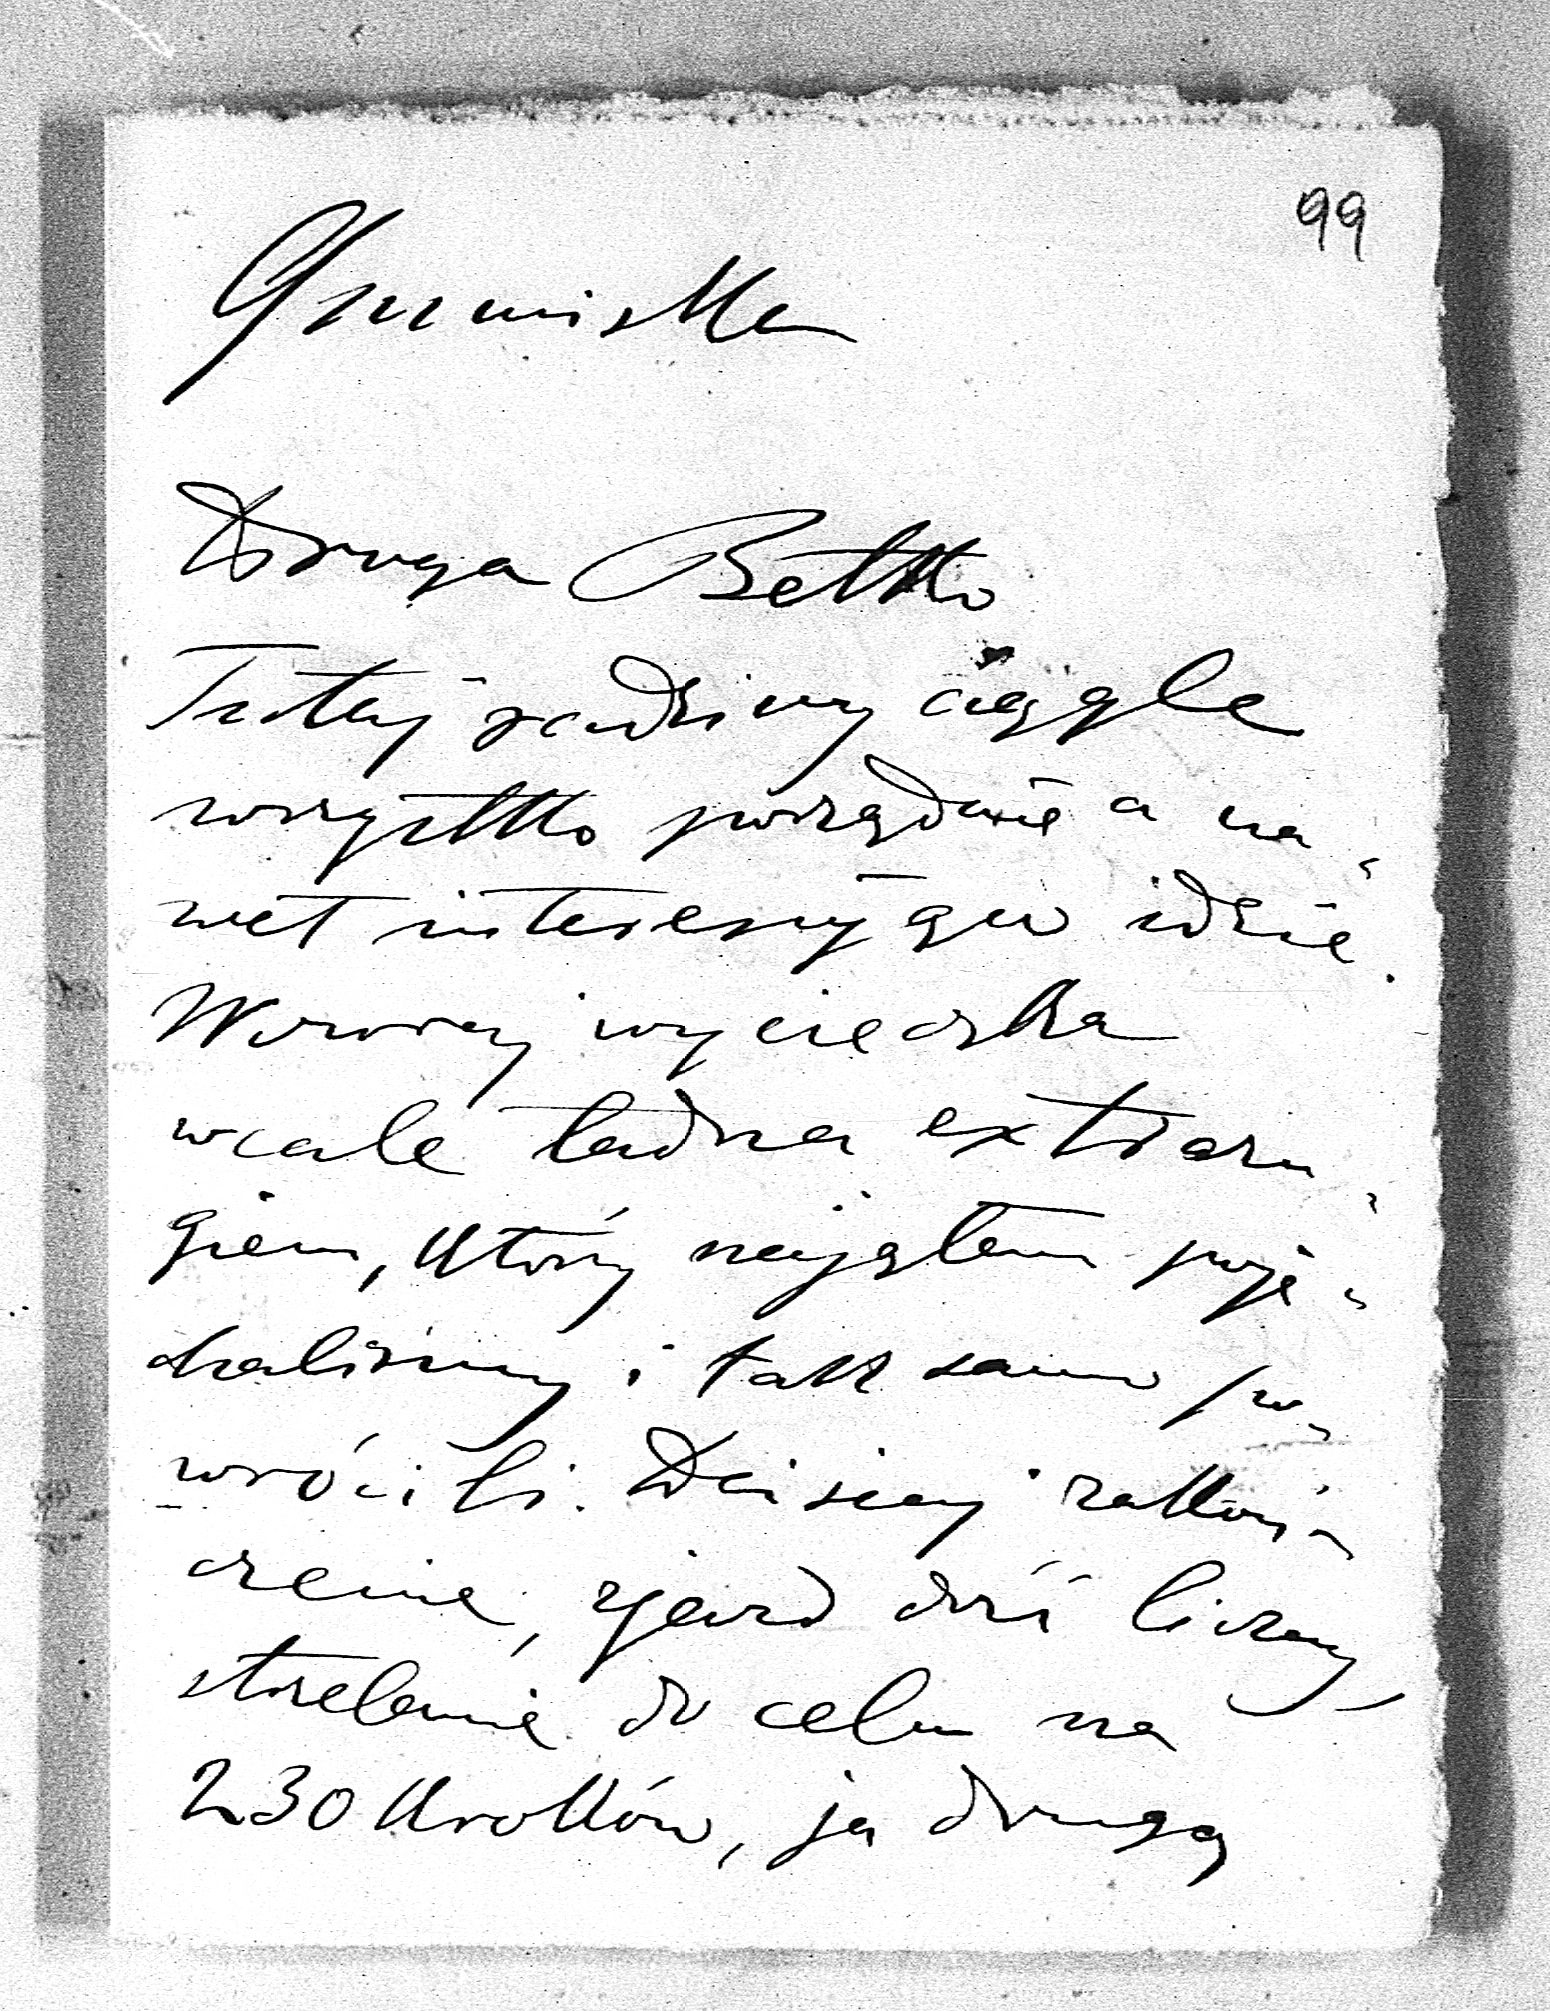 99
Gmunisko
Droga Betko
Tutaj siedzimy ciągle
wszystko porządnie a na-
wet interesująco idzie.
Wczoraj wycieczka
wcale ładna extrazu-
giem, który najętem poje-
chaliśmy i tak samo po-
wrócili. Dzisiaj zakoń-
czenie, zjazd dość liczny,
strzelanie do celu na
230 kroków, ja drugą